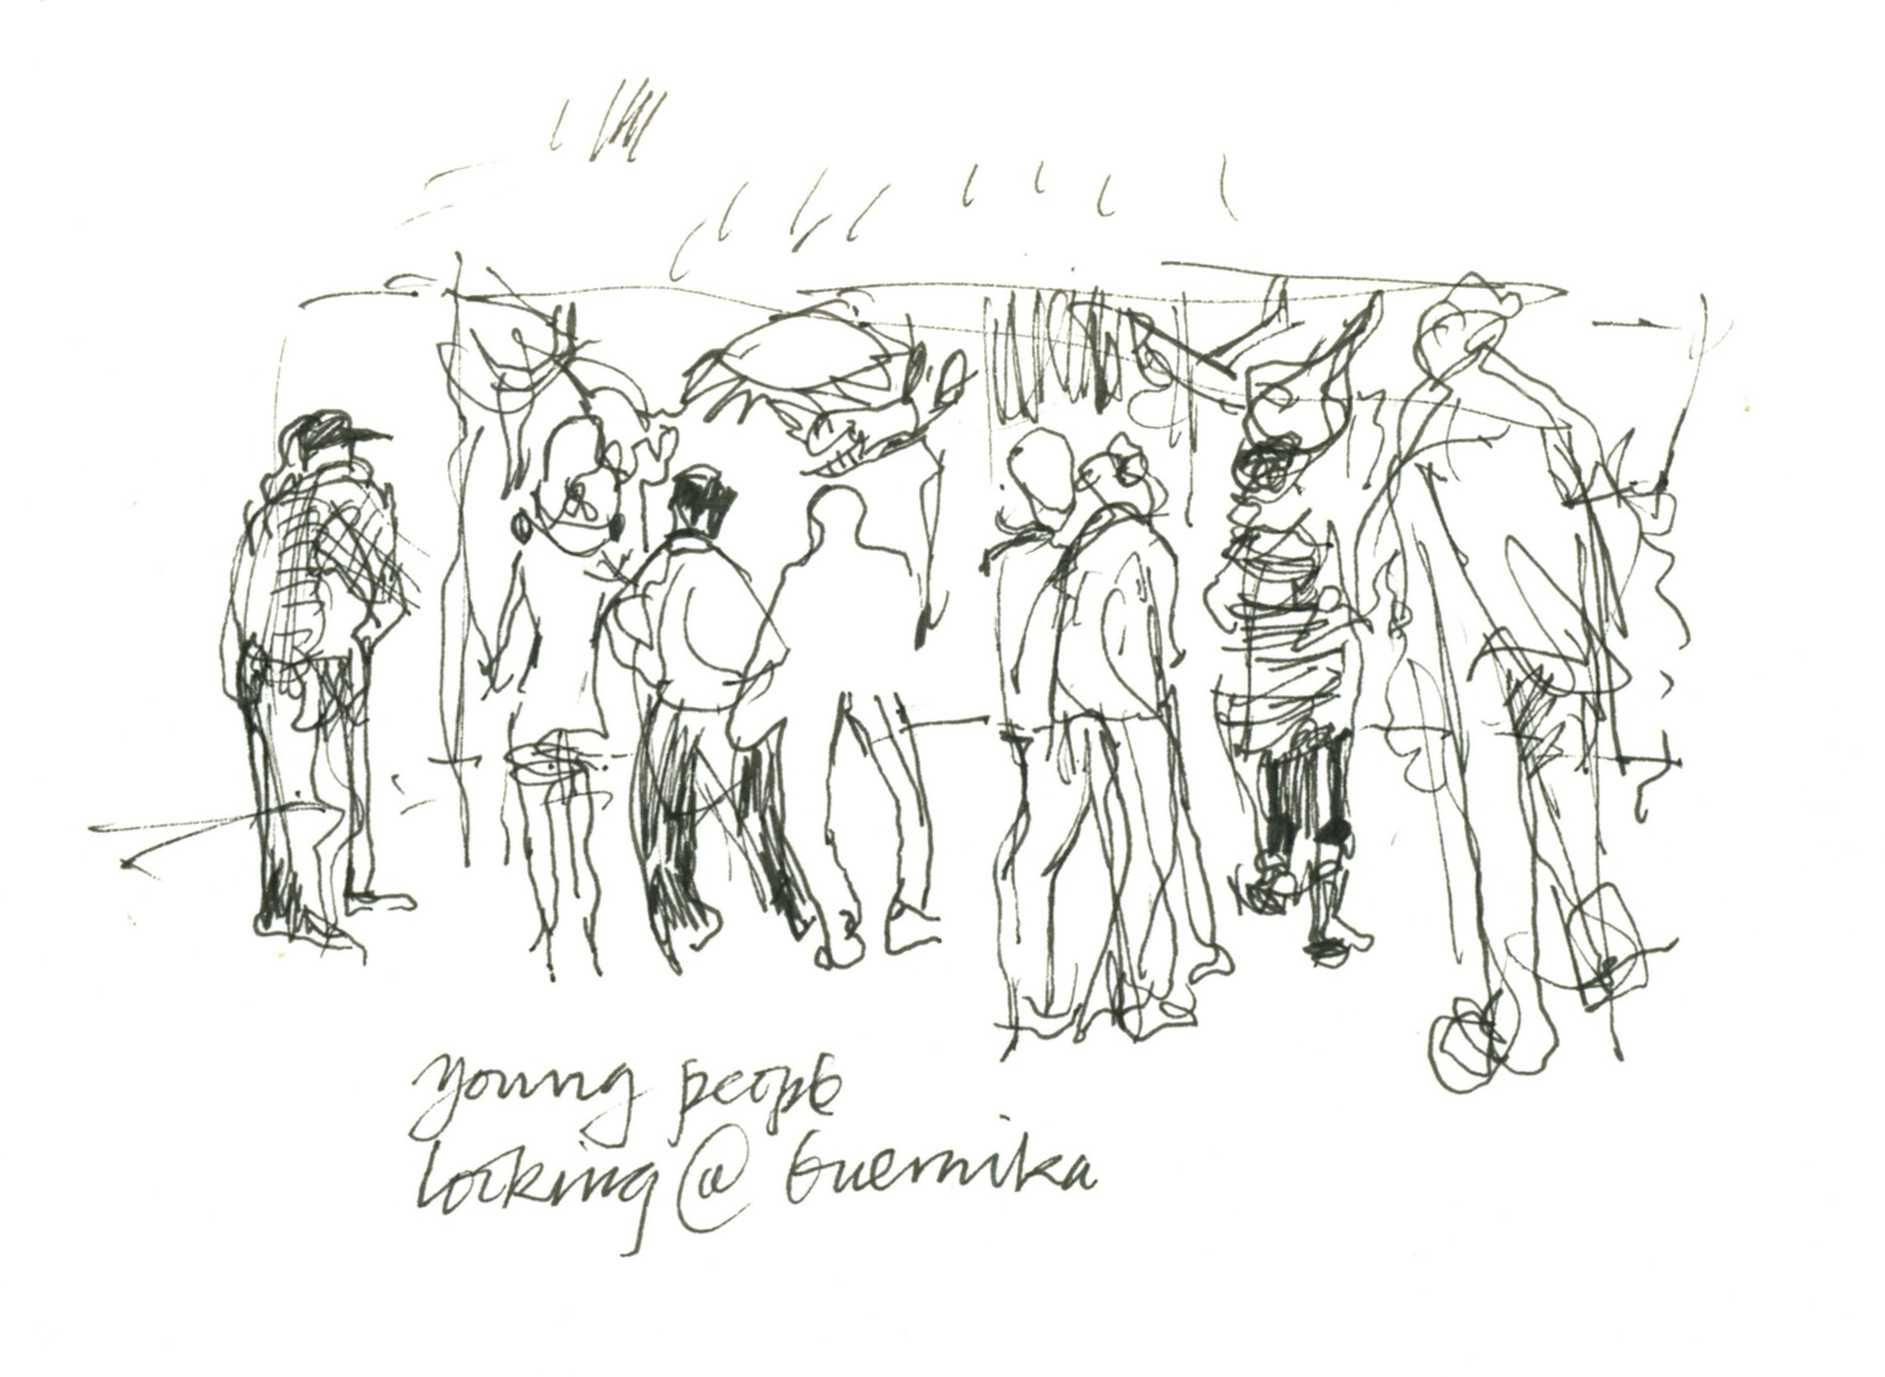 young people
looking @ Guernika